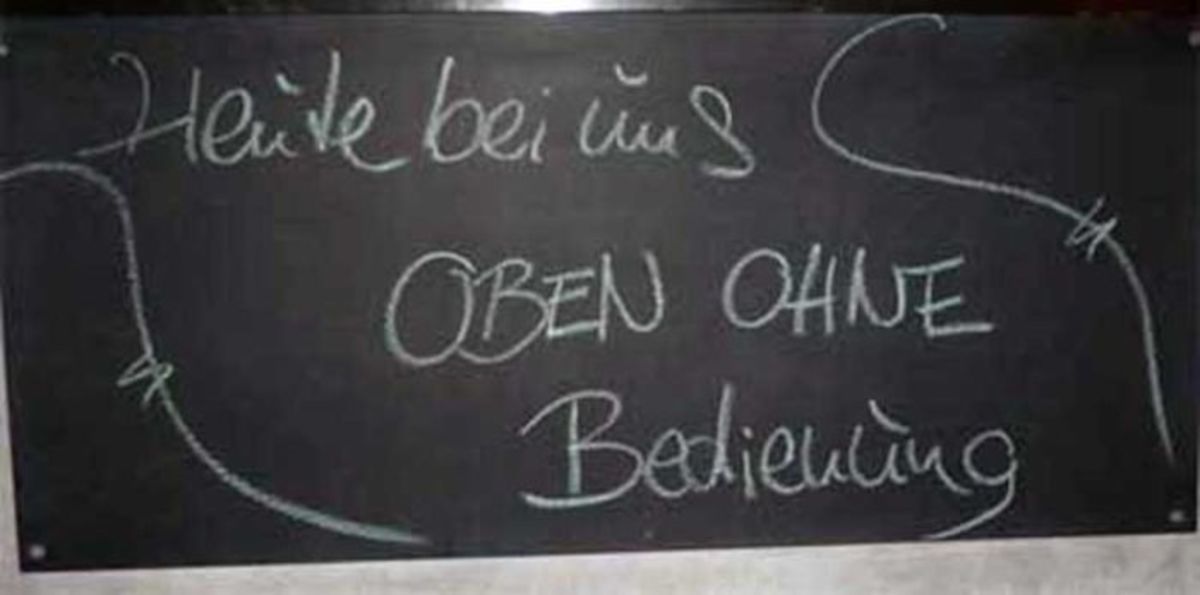 Heute bei uns
OBEN OHNE
Bedienung